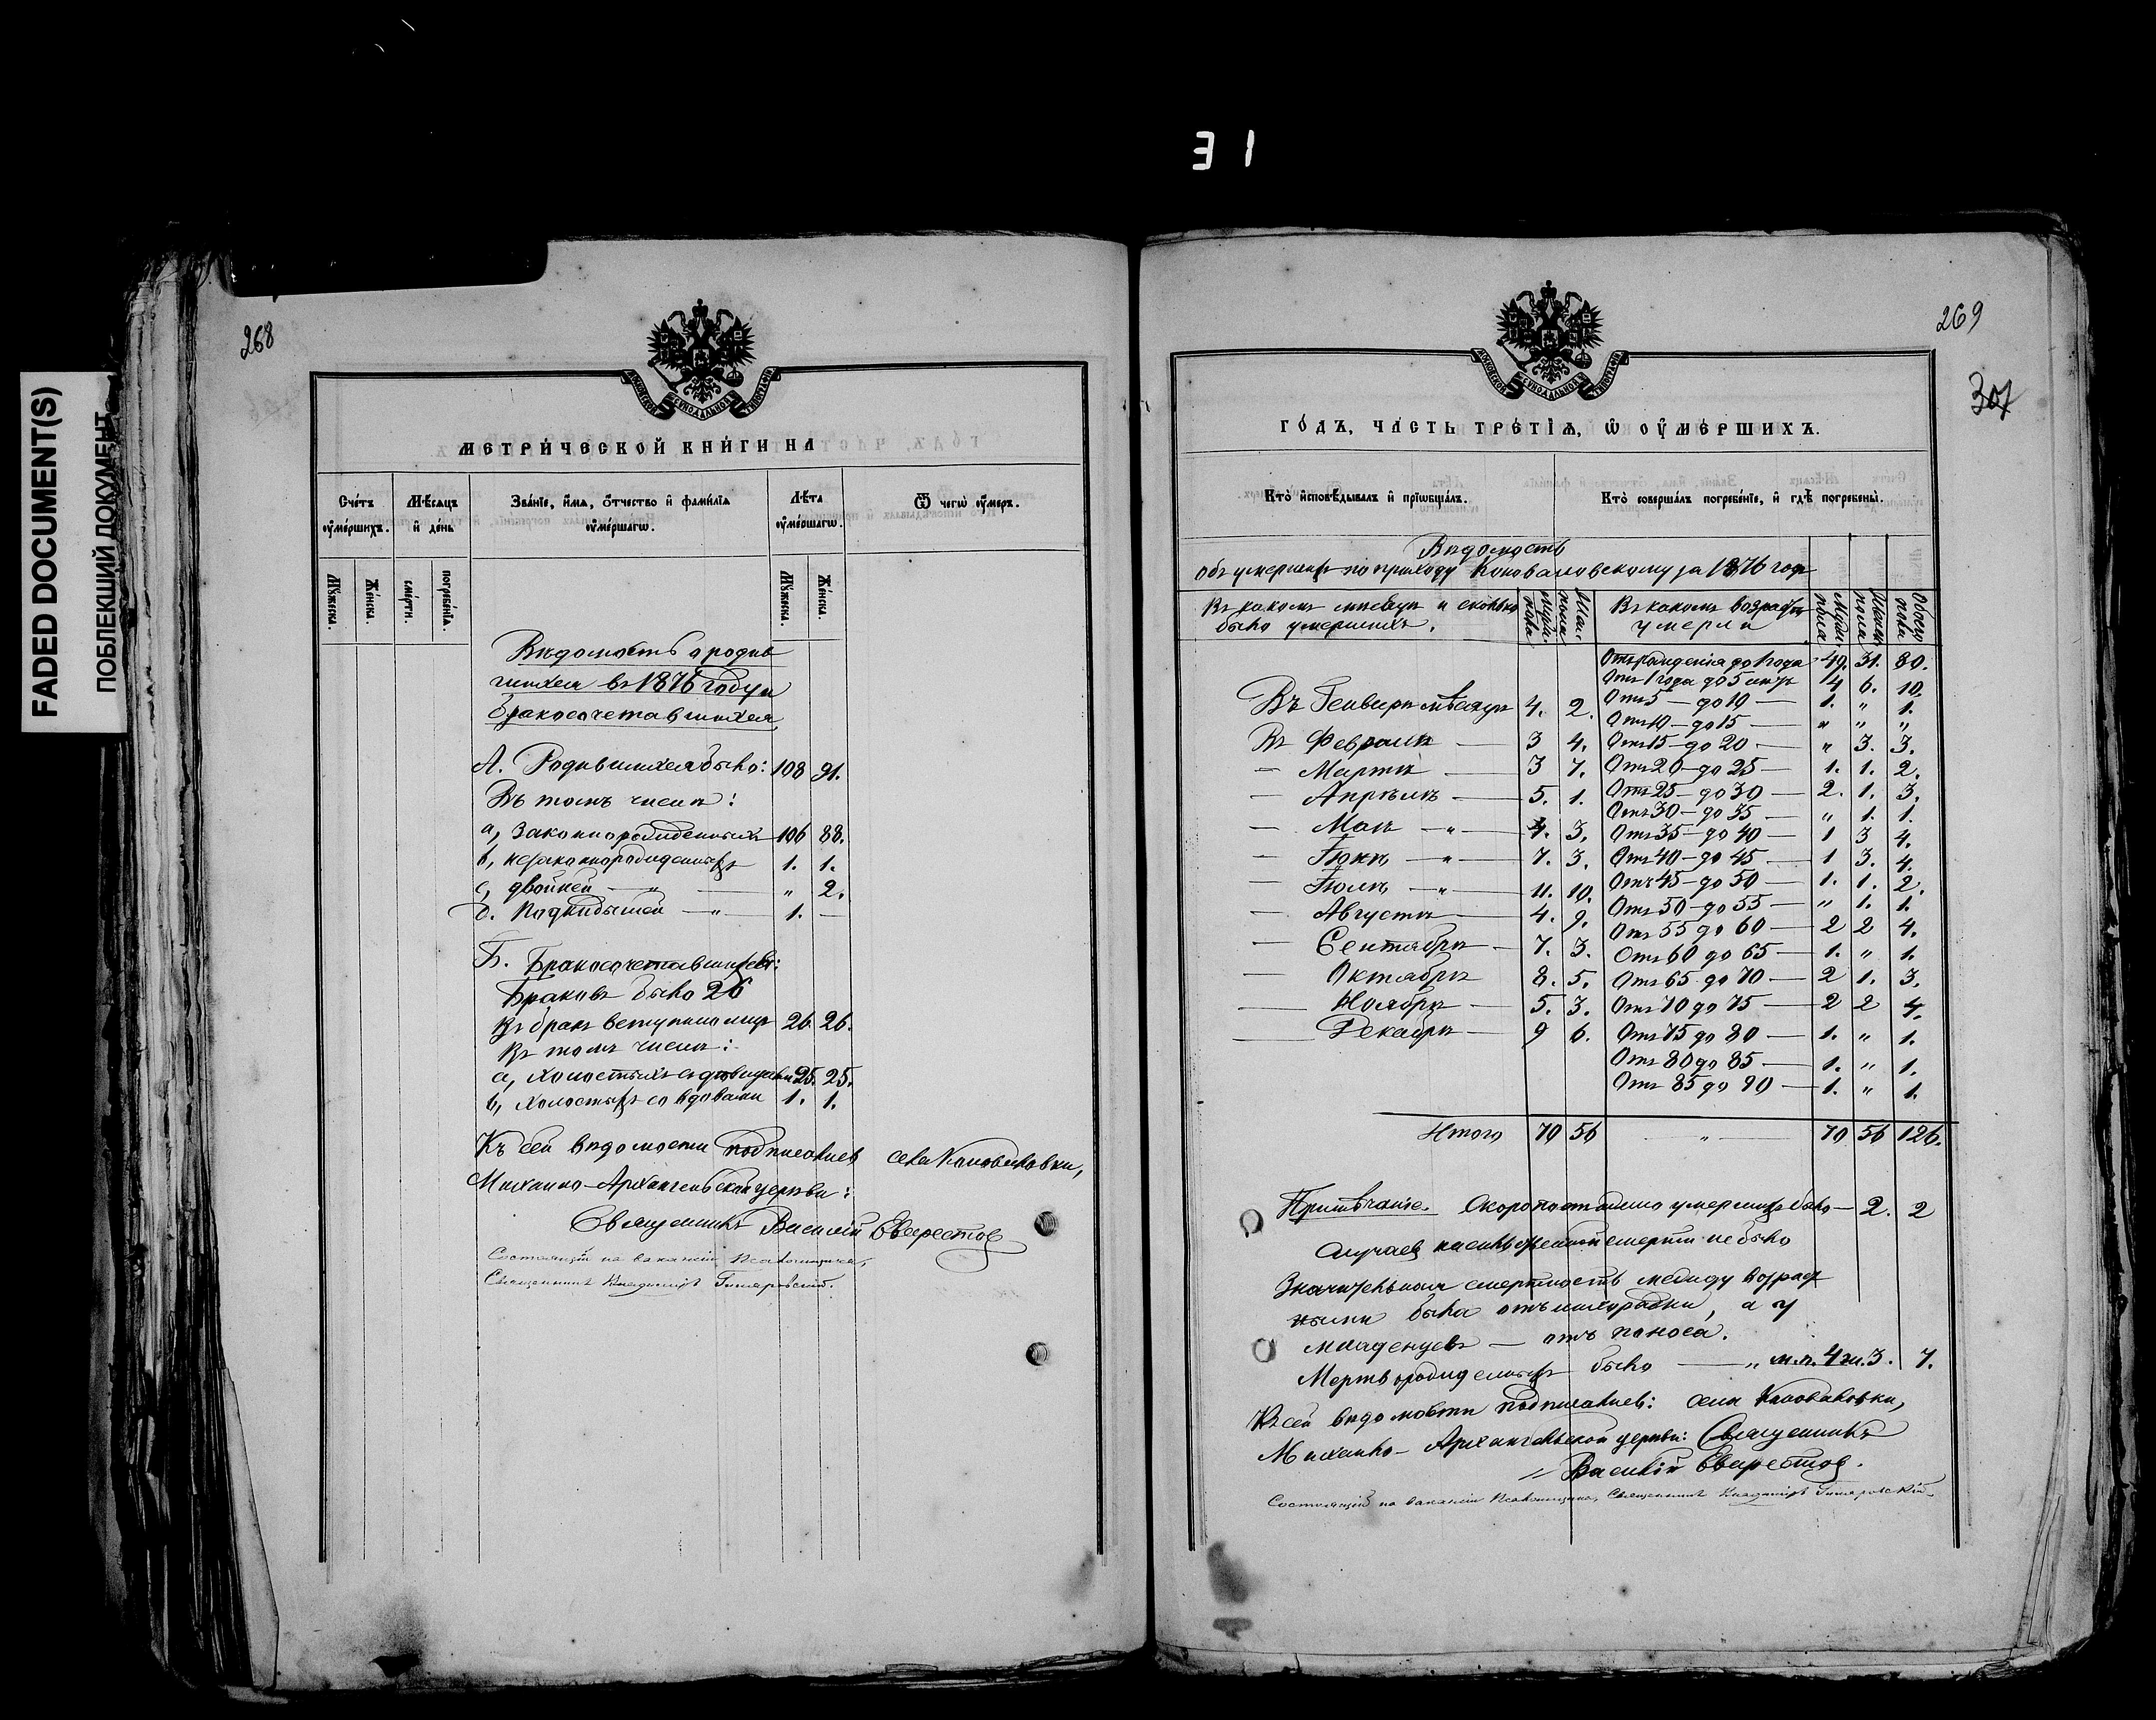 31
FADED DOCUMENT(S)
ПОБЛЕКШИЙ ДОКУМЕНТ
268
МОСКОВСКОЙ СѴНОДАЛЬНОЙ ТИПОГРАФІИ
МЕТРИ́ЧЕСКОЙ КНИ́ГИ НА
Сче́тъ ᲂумершихъ.
Мѣ́сѧцъ и҆ де́нь
Зва́нїе, и҆́мѧ, ѻ҆́тчество и҆ фами́лїѧ ᲂумершагѡ.
Лѣ́та ᲂумершагѡ.
Ѿ чегѡ̀ ᲂу҆́меръ.
Мꙋ́жеска.
Же́нска.
сме́рти.
погребе́нїѧ.
Мꙋ́жеска.
Же́нска.
Вѣдомость о родив
шихся въ 1876 году и
бракосочетавшихся
А. Родившихся было: 108 91.
Въ томъ числѣ:
а, законнорожденныхъ 106 88.
b, незаконнорожденныхъ 1. 1.
с, двойней — „ — „ 2.
d. Подкидышей — „ 1. —
Б. Бракосочетавшихся:
Браковъ было 26
Въ бракъ вступило лицъ 26. 26.
Въ томъ числѣ:
а, холостыхъ съ дѣвицами 25. 25.
b, холостыхъ со вдовами 1. 1.
Къ сей вѣдомости подписались села Коноваловки,
Михаило-Архангельской церкви:
Священникъ Василій Еверестов
Состоящій на вакансіи Псаломщика,
Священникъ Владиміръ
269
307
МОСКОВСКОЙ СѴНОДАЛЬНОЙ ТИПОГРАФІИ
ГО́ДЪ, ЧА́СТЬ ТРЕ́ТІѦ, Ѡ҆ ОУ҆МЕ́РШИХЪ.
Кто̀ и҆сповѣ́дывалъ и҆ прїѡбща́лъ.
Кто̀ соверша́лъ погребе́нїе, и҆ гдѣ̀ погребены̀.
Вѣдомость
объ умершихъ по приходу Коноваловскому за 1876 годъ
Въ какомъ мѣсяцѣ и сколько было умершихъ.
Муж. пола
Жен. пола
Въ какомъ возрастѣ умерли
Муж. пола.
Женск. пола.
Обоего пола
Отъ рожденія до 1 года 49. 31. 80.
Отъ 1 года до 5 лѣтъ 4 6. 10.
Въ Генварѣ мѣсяцѣ 4. 2. Отъ 5 — до 10 — 1. „ 1.
Отъ 10 — до 15 — „ „ „
Въ Февралѣ — 3 4. Отъ 15 — до 20 — „ 3. 3.
— Мартѣ — 3 7. Отъ 20 — до 25 — 1. 1. 2.
— Апрѣлѣ — 5. 1. Отъ 25 — до 30 — 2. 1. 3.
Отъ 30 — до 35 — „ 1. 1.
— Маѣ — „ — 4. 3. Отъ 35 — до 40 — 1 3 4.
— Іюнѣ — „ — 7. 3. Отъ 40 — до 45 — 1 3. 4.
— Іюлѣ — „ — 11. 10. Отъ 45 — до 50 — 1. 1. 2.
— Августѣ — 4. 9. Отъ 50 — до 55 — „ 1. 1.
Отъ 55 до 60 — 2 2 4.
— Сентябрѣ — 7. 3. Отъ 60 до 65 — 1. „ 1.
— Октябрѣ 8. 5. Отъ 65 до 70 — 2 1. 3.
— Ноябрѣ — 5. 3. Отъ 70 до 75 — 2 2 4.
— Декабрѣ — 9 6. Отъ 75 до 80 — 1. „ 1.
Отъ 80 до 85 — 1. „ 1.
Отъ 85 до 90 — 1. „ 1.
Итого 70 56 — „ — 70 56 126.
Примѣчаніе. Скоропостижно умершихъ было — 2. 2
Случаевъ насильственной смерти не было
Значительная смертность между возраст
ными была отъ лихорадки, а у
младенцевъ — отъ поноса.
Мертворожденныхъ было — „ м.п. 4 ж. 3. 7.
Къ сей вѣдомости подписались: села Коноваловки,
Михаило-Архангельской церкви: Священникъ
Василій Еверестов.
Состоящій на вакансіи Псаломщика, Священникъ Владиміръ